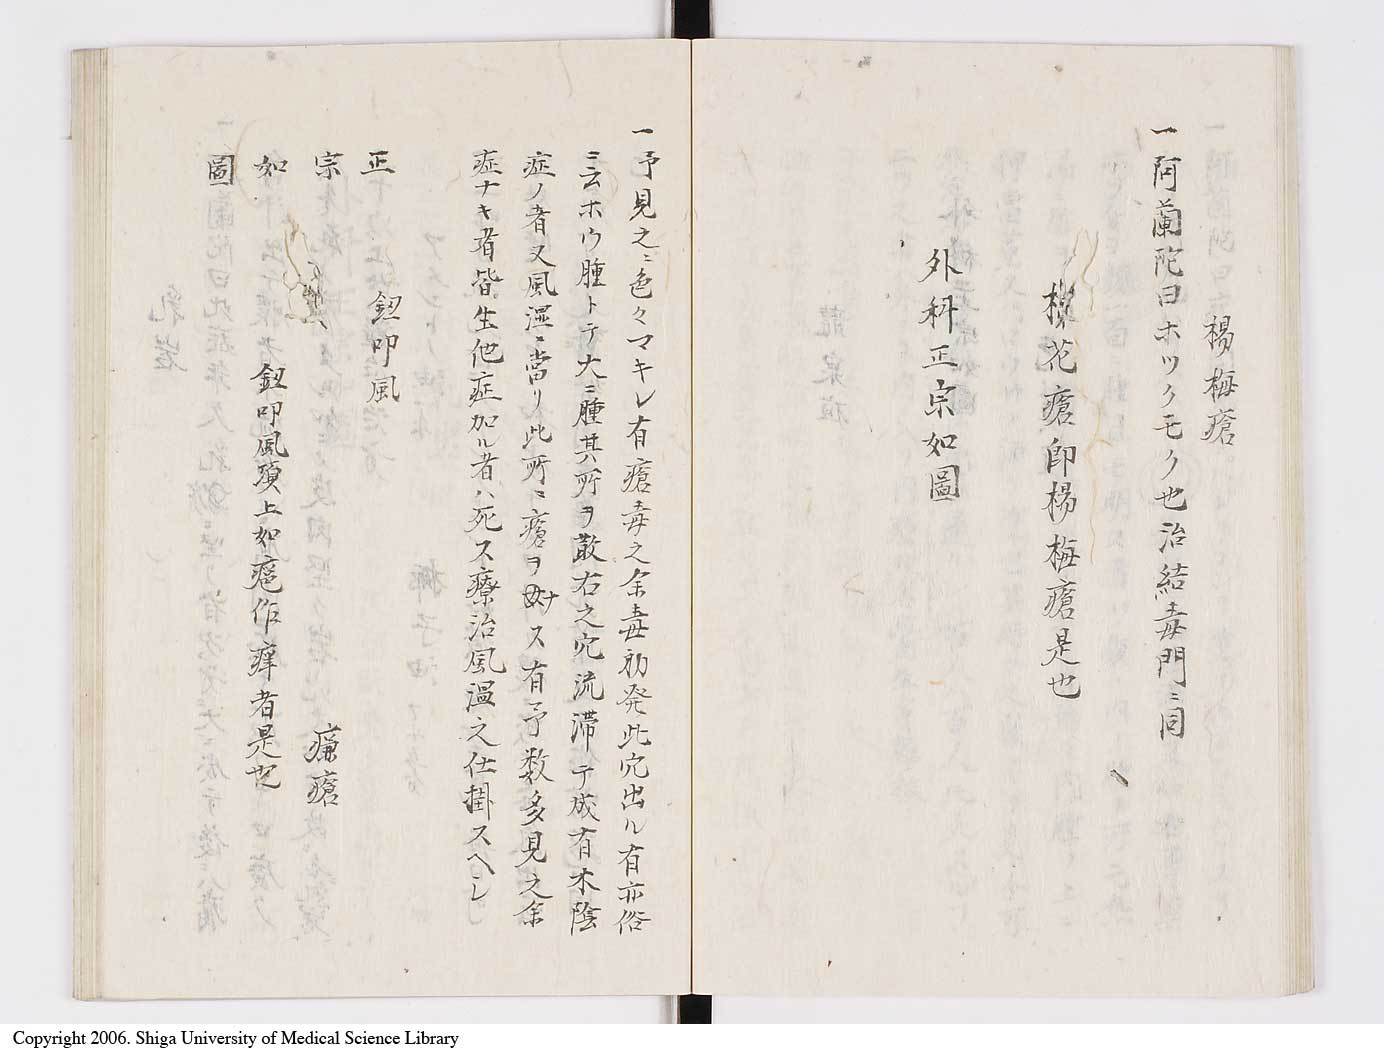 楊梅瘡
一阿蘭陀曰ホツクモク也治結毒門ニ同
楳花瘡即楊梅瘡是也
外科正宗如圖
一予見之ニ色々マキレ有瘡毒之余毒初発此穴出ル有亦俗
ニ云ホウ腫トテ大ニ腫其所ヲ散右之穴流滞テ成有木陰
症ノ者又風湿ニ當リ此所ニ瘡ヲナス有予数多見之余
症ナキ者皆生他症加ル者ハ死ス療治風温之仕掛スヘシ
正
鈕叩風
宗
㾾瘡
如
鈕叩風頭上如疤作痒者是也
圖
Copyright 2006. Shiga University of Medical Science Library